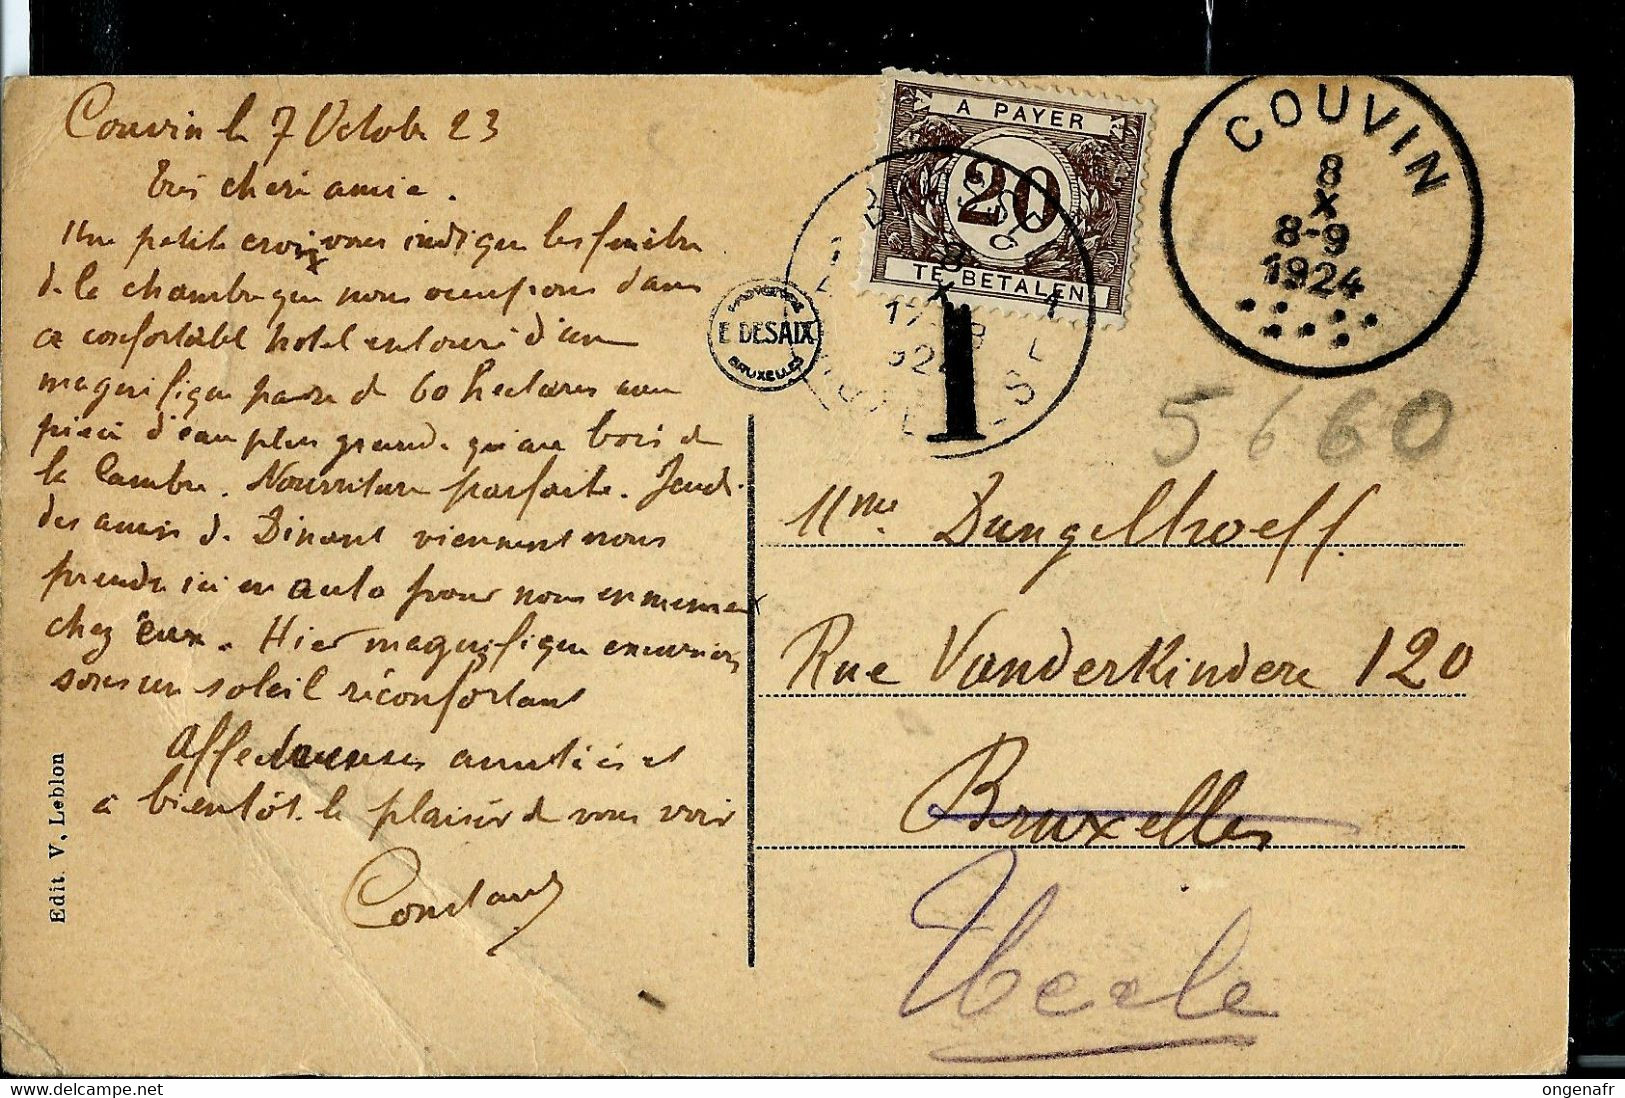 Couvin le 7 Octobre 23
Très chère amie.
Une petite croix vous indique les fenêtres
de la chambre que nous occupons dans
ce confortable hotel entouré d'un
magnifique parc de 60 hectares avec
pièce d'eau plus grande qu'au bois de
la Cambre. Nourriture parfaite. Jeudi
des amis de Dinant viennent nous
prendre ici en auto pour nous emmener
chez eux. Hier magnifique excursion
sous un soleil réconfortant
Affectueuses amitiés et
à bientôt le plaisir de vous voir
Constant
Edit. V. Leblon
E DESAIX
BRUXELLES
A PAYER
20
TE BETALEN
BRUSSEL
8
X
1
T
COUVIN
8
X
8-9
1924
5660
Mme Dungelhoeff.
Rue Vanderkindere 120
Bruxelles
Uccle
delcampe.net
ongenafr